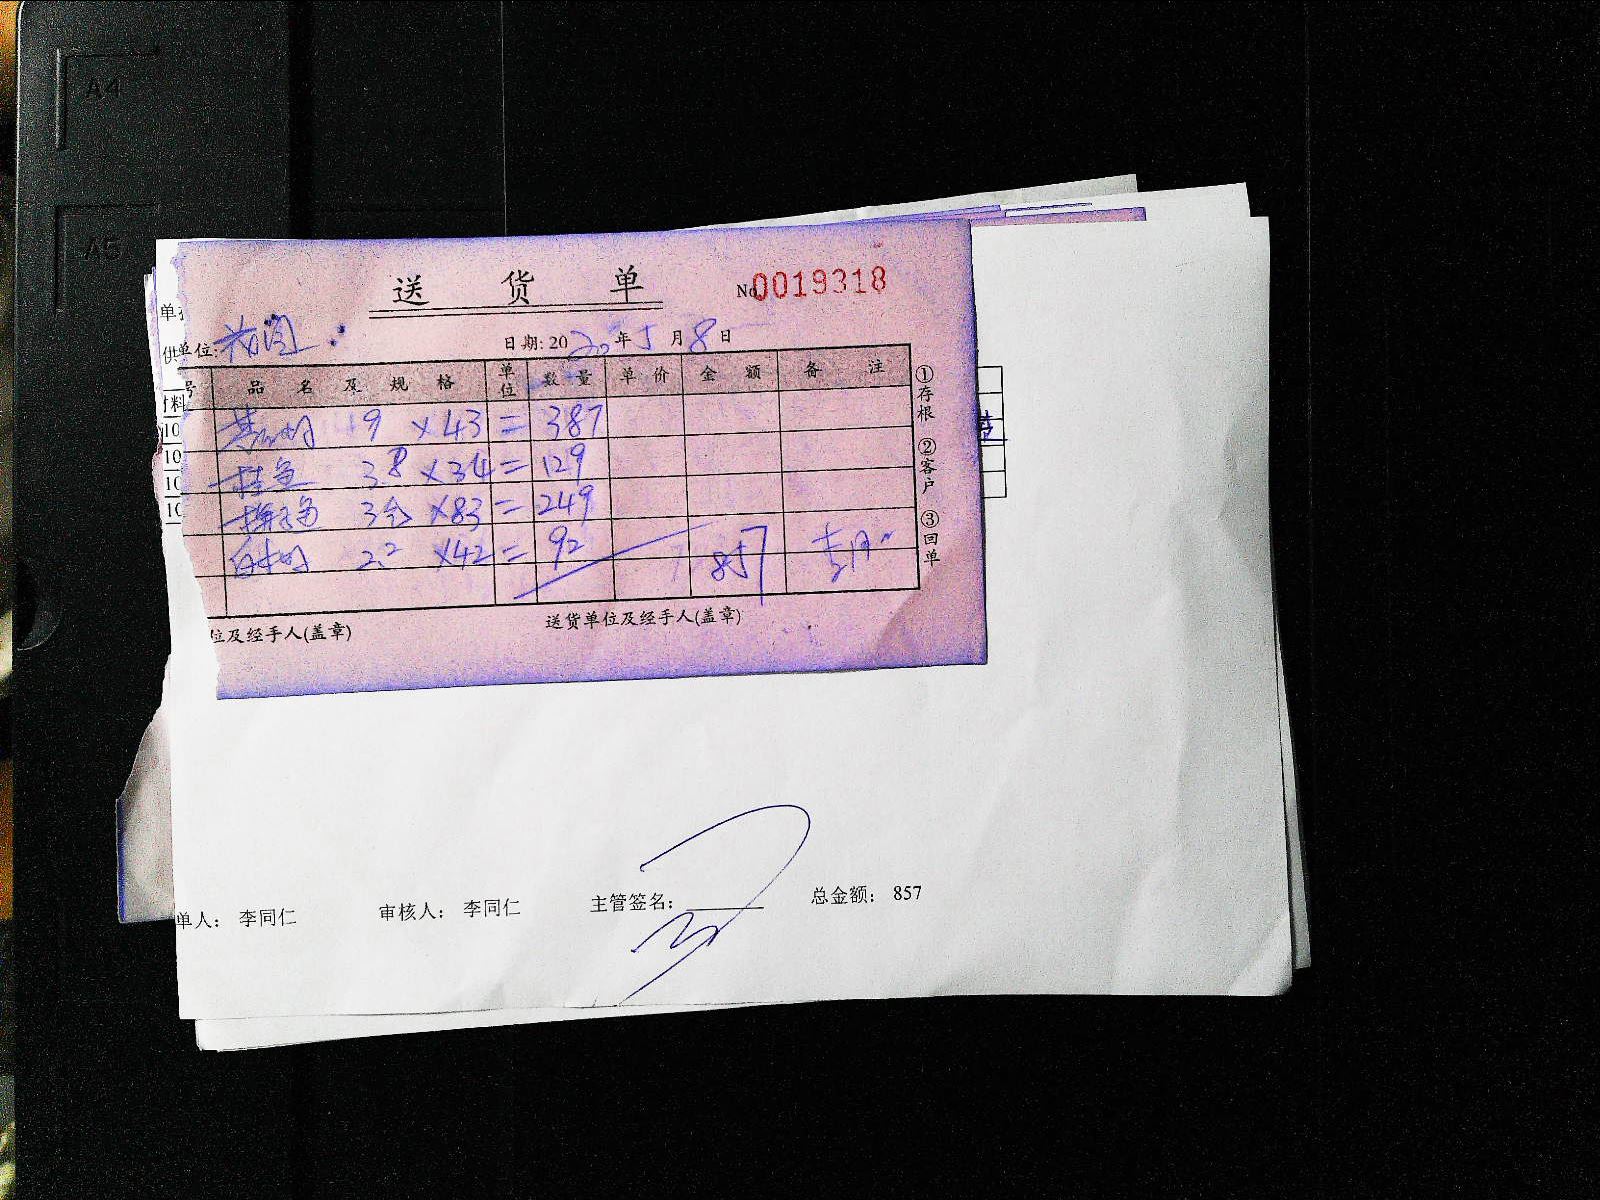 A4
A5
送 货 单
No 0019318
单位:
日期: 2020年5月8日
号 品 名 及 规 格 单位 数 量 单 价 金 额 备 注
9 ×43 = 387
桂鱼 3.8 ×34 = 129
3 ×83 = 249
2.2 ×42 = 92
857
①存根 ②客户 ③回单
位及经手人(盖章) 送货单位及经手人(盖章)
单
供
料
10
10
10
10
单人： 李同仁 审核人： 李同仁 主管签名： 总金额： 857